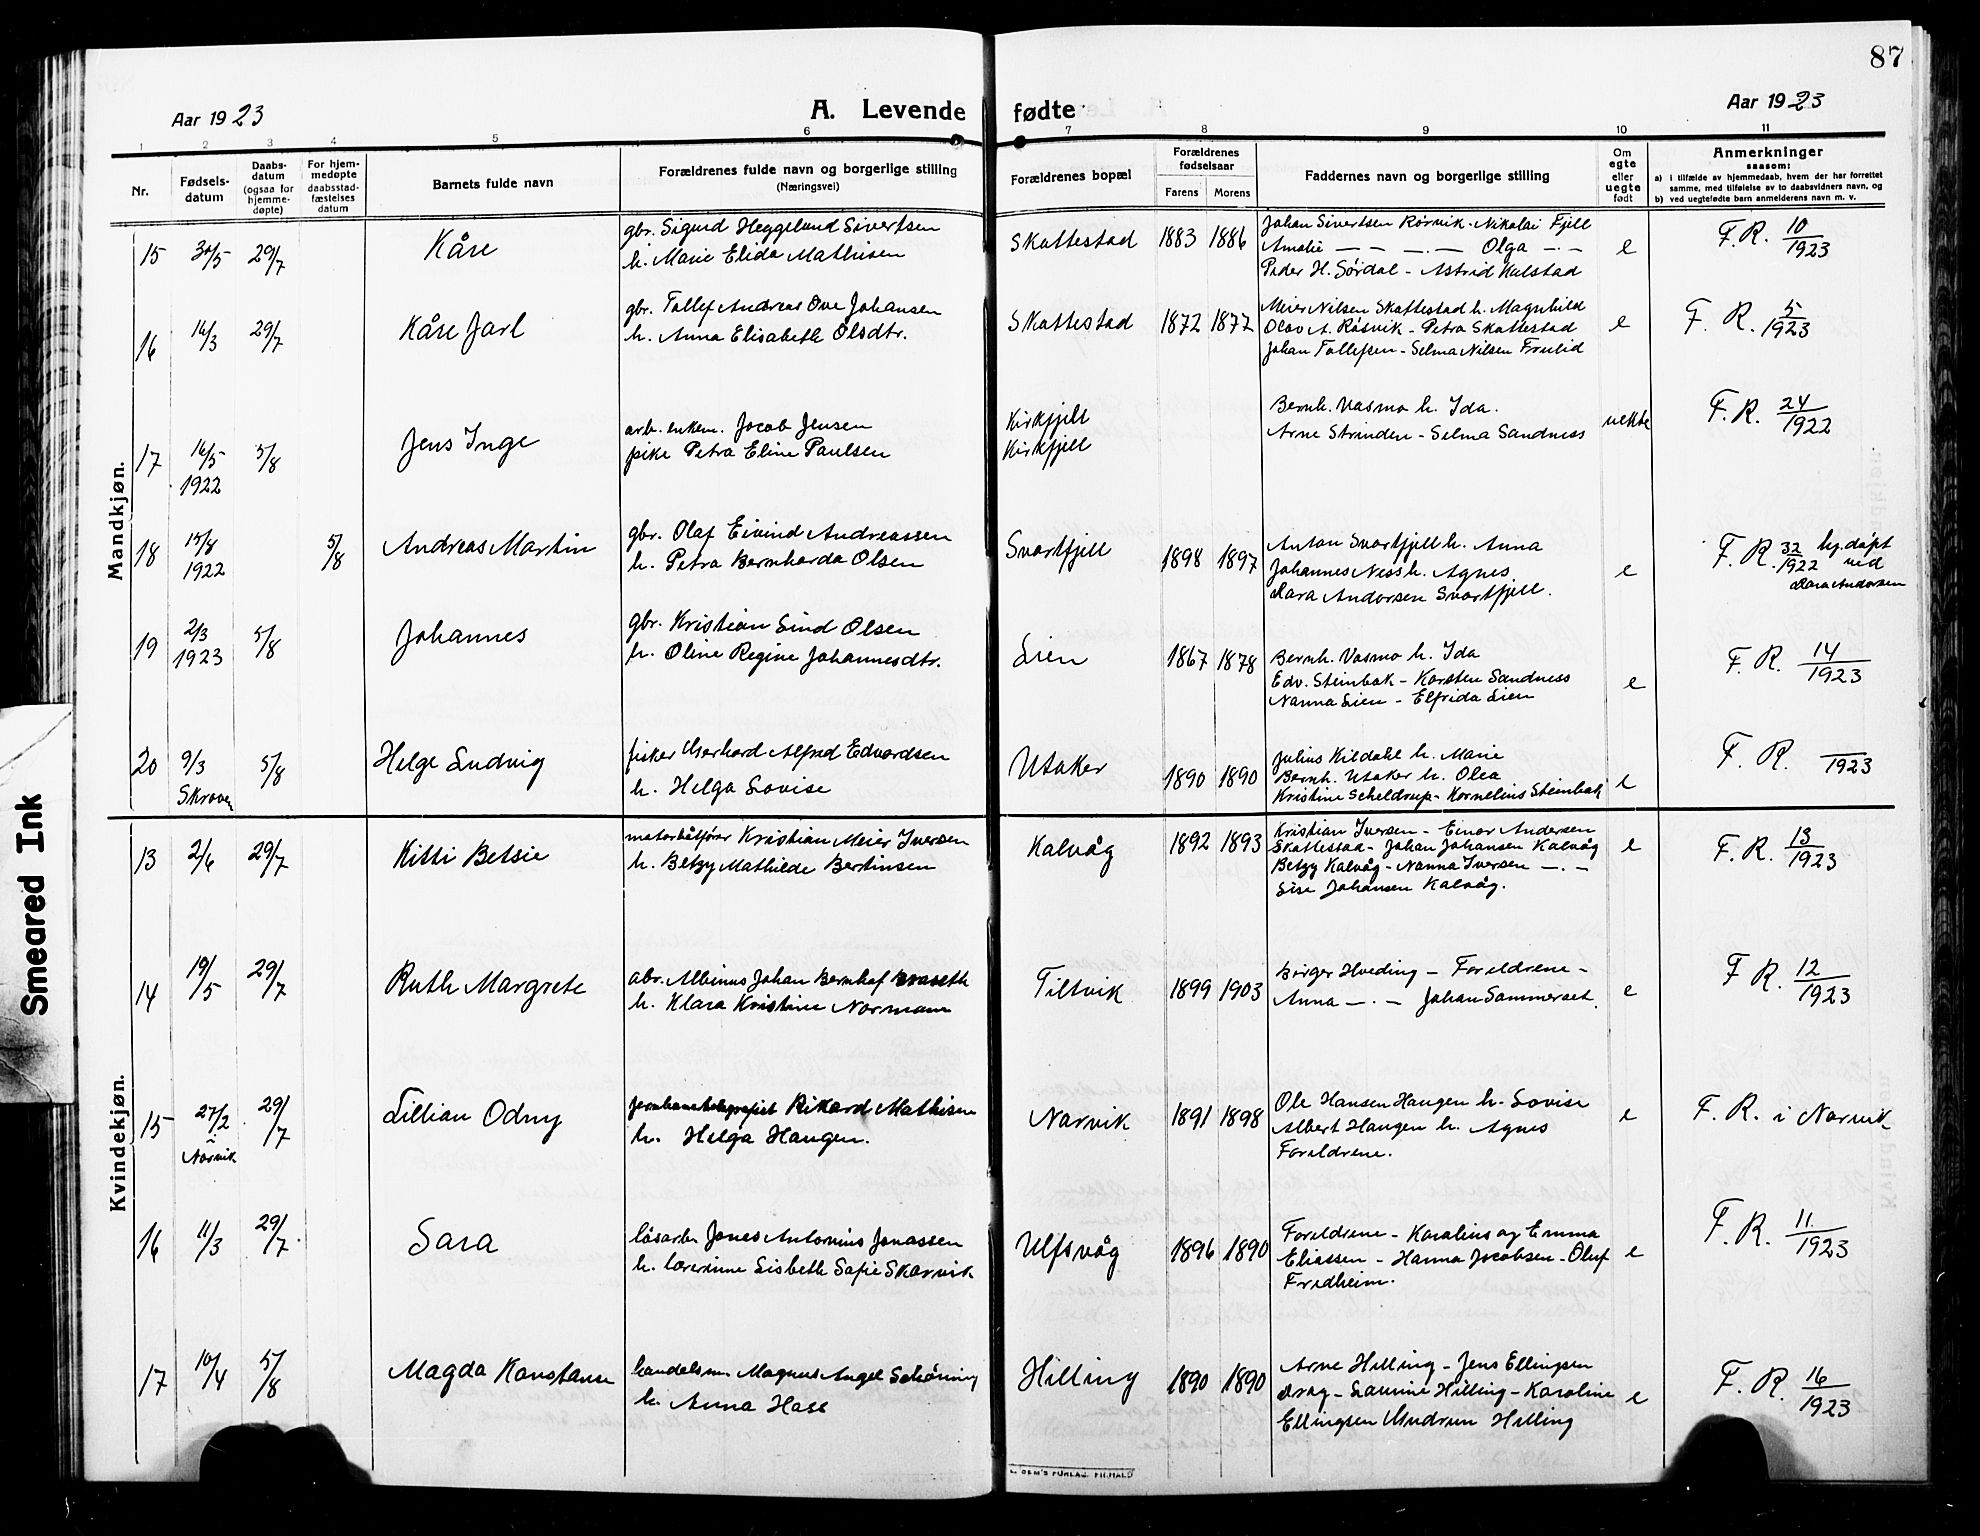 87
Aar 1923
A. Levende fødte
Aar 1923
1 2 3 4 5 6 7 8 9 10 11
Nr.
Fødsels-
datum
Daabs-
datum
(ogsaa for
hjemme-
døpte)
For hjem-
medøpte
daabsstad-
fæstelses
datum
Barnets fulde navn
Forældrenes fulde navn og borgerlige stilling
(Næringsvei)
Forældrenes bopæl
Forældrenes
fødselsaar
Farens Morens
Faddernes navn og borgerlige stilling
Om
egte
eller
uegte
født
Anmerkninger
saasom:
a) i tilfælde av hjemmedaab, hvem der har forrettet
samme, med tilføielse av to daabsvidners navn, og
b) ved uegtefødte barn anmelderens navn m. v.
Mandkjøn.
15 30/5 29/7 Kåre
gbr. Sigurd Heggelund Sivertsen
h. Marie Elida Mathisen
Skattestad 1883 1886
Johan Sivertsen Rørvik - Nikolai Fjell
Amalie — — — . — Olga — . —
Peder H. Sørdal - Astrid Kulstad
e F. R. 10/1923
16 14/3 29/7 Kåre Jarl
gbr. Tollef Andreas Ove Johansen
h. Anna Elisabeth Olsdtr.
Skattestad 1872 1877
Meier Nilsen Skattestad h. Magnhild
Olav A. Røsvik - Petra Skattestad
Johan Tollefsen - Selma Nilsen Frulid
e F. R. 5/1923
17 14/5 1922 5/8 Jens Inge
arb. enkem. Jocob Jensen
pike Petra Eline Paulsen
Kirkfjell
Kirkfjell
Bernh. Vasmo h. Ida.
Arne Strinden - Selma Sandness
uekte F. R. 24/1922
18 15/8 1922 5/8 Andreas Martin
gbr. Olaf Eivind Andreassen
h. Petra Bernharda Olsen
Svartfjell 1898 1897
Anton Svartfjell h. Anna
Johannes Ness h. Agnes
Lara Andorsen Svartfjell.
e F. R. 32/1922 hj. døpt
ved
Lara Andorsen
19 2/3 1923 5/8 Johannes
gbr. Kristian Lind Olsen
h. Oline Regine Johannesdtr.
Lien 1867 1878
Bernh. Vasmo h. Ida
Edv. Steinbak - Karsten Sandness
Nanna Lien - Elfrida Lien
e F. R. 14/1923
20 9/3 Skroven 5/8 Helge Ludvig
fisker Gerhard Alfred Edvardsen
h. Helga Lovise
Utaker 1890 1890
Julius Kildahl h. Marie
Bernh. Utaker h. Olea
Kristine Scheldrup - Kornelius Steinbak
e F. R. 1923
Kvindekjøn.
13 2/6 29/7 Kitti Betsie
motorbåtfører Kristian Meier Iversen
h. Betzy Mathilde Bertinsen
Kalvåg 1892 1893
Kristian Iversen - Einar Andersen
Skattestad - Johan Johansen Kalvåg
Betzy Kalvåg - Nanna Iversen — . —
Lise Johansen Kalvåg.
e F. R. 13/1923
14 19/5 29/7 Ruth Margrete
abr. Albinus Johan Bernhof
h. Klara Kristine Normann
Tiltvik 1899 1903
Børger Hveding — Foreldrene -
Anna — . — Johan Sommerset.
e F. R. 12/1923
15 27/2 i Narvik 29/7 Lillian Odny
jernbanetelegrafist Rikard Mathisen
h. Helga Haugen.
Narvik 1891 1898
Ole Hansen Haugen h. Lovise
Albert Haugen h. Agnes
Foreldrene.
e F. R. i Narvik
16 11/3 29/7 Sara
løsarb. Jones Antonius Jonassen
h. lærerinne Lisbeth Sofie Skarvik
Ulfsvåg 1896 1890
Foreldrene - Karolius og Emma
Eliassen - Hanna Jacobsen - Oluf
Fredheim.
e F. R. 11/1923
17 10/4 5/8 Magda Konstanse
handelsm. Magnus Angel Schøning
h. Anna Hass
Hilling 1890 1890
Arne Hilling - Jens Ellingsen
Drag - Laurine Hilling - Karoline
Ellingsen Gudrun Hilling
e F. R. 16/1923
Smeared Ink